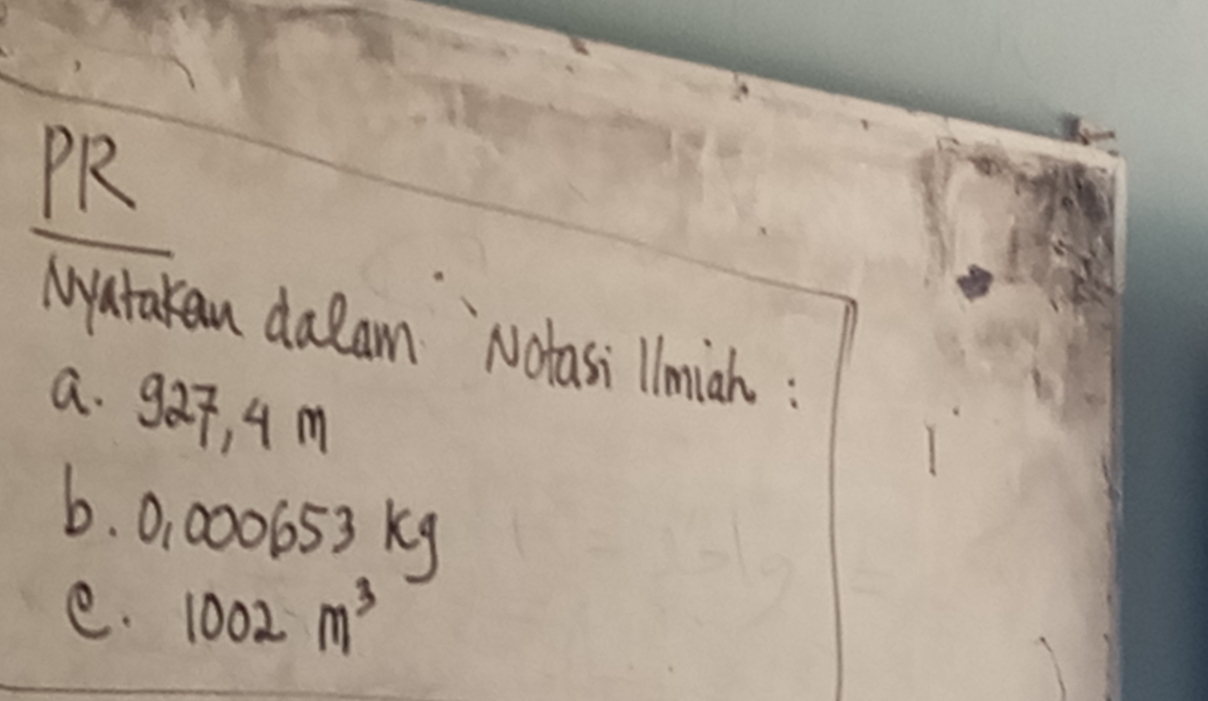 PR
Nyatakan dalam Notasi Ilmiah :
a. 927,4 m
b. 0,000653 kg
c. 1002 m³